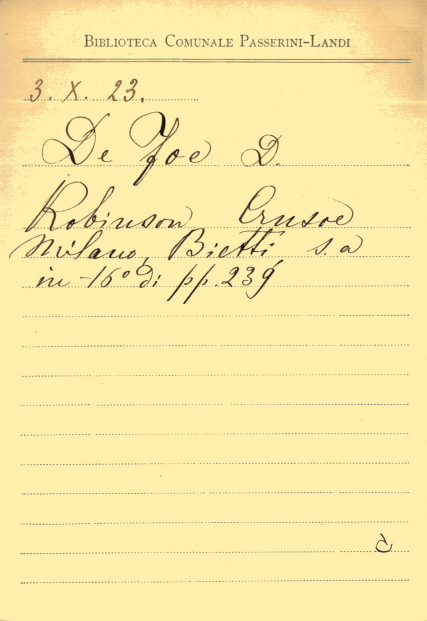 BIBLIOTECA COMUNALE PASSERINI-LANDI
3. X. 23.
De Foe D.
Robinson Crusoe
Milano, Bietti, s. a
in -16° di pp. 239